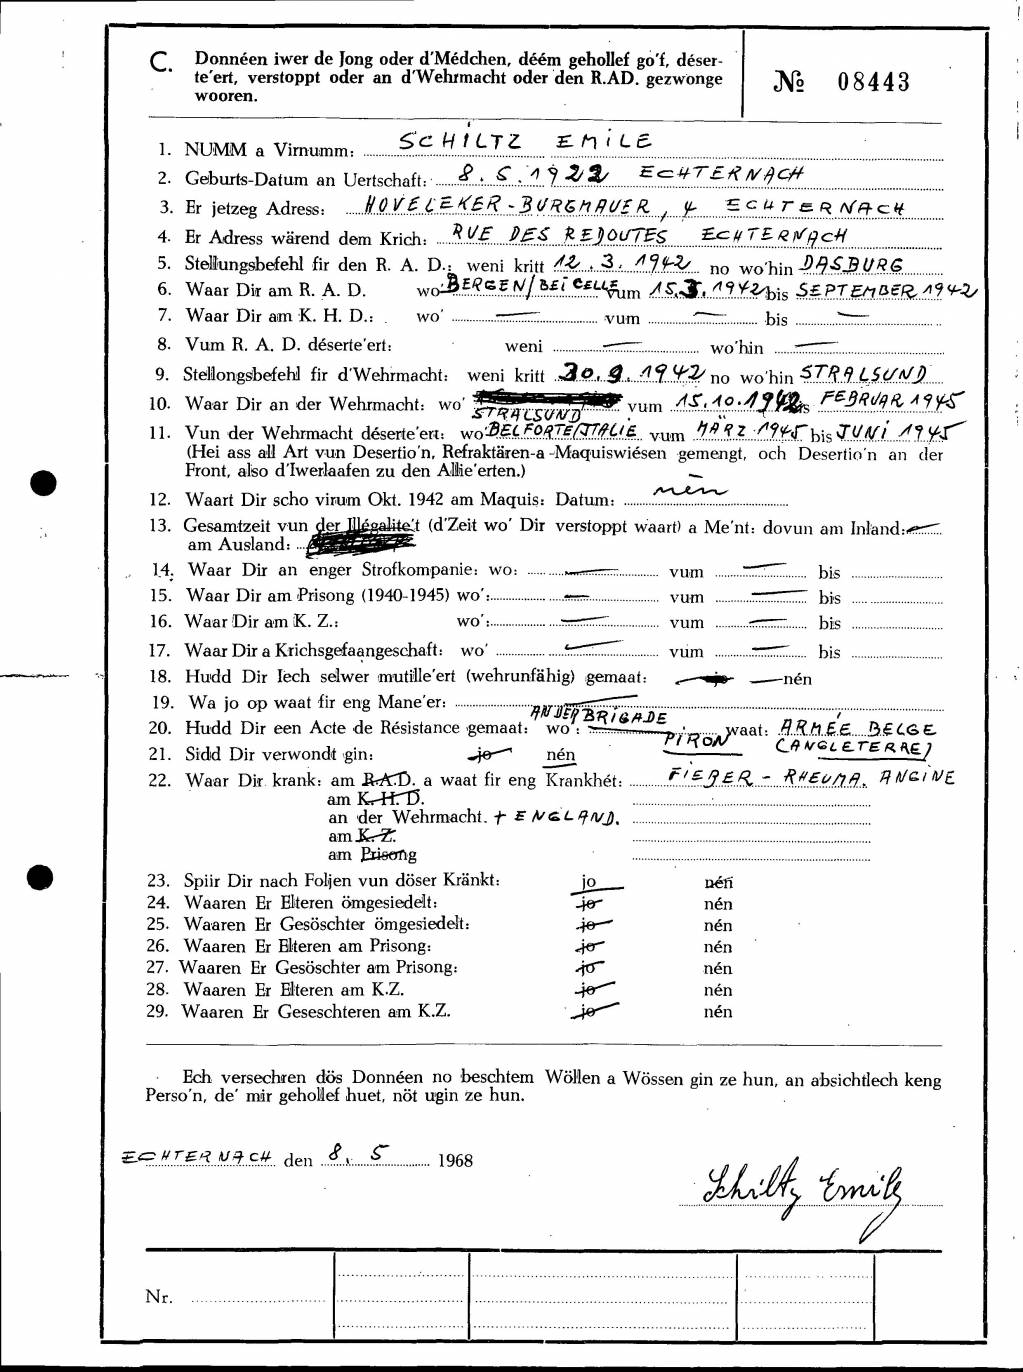 C. Donnéen iwer de Jong oder d'Médchen, déém gehollef go'f, déser-
te'ert, verstoppt oder an d'Wehrmacht oder den R.AD. gezwonge
wooren.
№ 08443
1. NUMM a Virnumm: SCHILTZ EMILE
2. Geburts-Datum an Uertschaft: 8.5.1922 ECHTERNACH
3. Er jetzeg Adress: HOVELEKER-BURGMAUER, 4 ECHTERNACH
4. Er Adress wärend dem Krich: RUE DES REDOUTES ECHTERNACH
5. Stellungsbefehl fir den R. A. D.: weni kritt 12.3.1942 no wo'hin DASBURG
6. Waar Dir am R. A. D. wo' BERGEN/BEI CELLE vum 15.3.1942 bis SEPTEMBER 1942
7. Waar Dir am K. H. D.: wo' — vum — bis —
8. Vum R. A. D. déserte'ert: weni — wo'hin —
9. Stellongsbefehl fir d'Wehrmacht: weni kritt 30.9.1942 no wo'hin STRALSUND
10. Waar Dir an der Wehrmacht: wo' STRALSUND vum 15.10.1942 bis FEBRUAR 1945
11. Vun der Wehrmacht déserte'ert: wo' BELFORTE/ITALIE vum MÄRZ 1945 bis JUNI 1945
(Hei ass all Art vun Desertio'n, Refraktären-a-Maquiswiésen gemengt, och Desertio'n an der
Front, also d'Iwerlaafen zu den Allie'erten.)
12. Waart Dir scho virum Okt. 1942 am Maquis: Datum: nén
13. Gesamtzeit vun der Illégalite't (d'Zeit wo' Dir verstoppt waart) a Me'nt: dovun am Inland: —
am Ausland:
14. Waar Dir an enger Strofkompanie: wo: — vum — bis
15. Waar Dir am Prisong (1940-1945) wo': — vum — bis
16. Waar Dir am K. Z.: wo': — vum — bis
17. Waar Dir a Krichsgefaangeschaft: wo' — vum — bis
18. Hudd Dir Iech selwer mutille'ert (wehrunfähig) gemaat: jo — nén
19. Wa jo op waat fir eng Mane'er: —
20. Hudd Dir een Acte de Résistance gemaat: wo': AN DER BRIGADE PIRON waat: ARMÉE BELGE
(ANGLETERRE)
21. Sidd Dir verwondt gin: jo nén
22. Waar Dir krank: am R.A.D. a waat fir eng Krankhét: FIEBER - RHEUMA. ANGINE
am K. H. D.
an der Wehrmacht. + ENGLAND.
am K. Z.
am Prisong
23. Spiir Dir nach Foljen vun döser Kränkt: jo nén
24. Waaren Er Elteren ömgesiedelt: jo nén
25. Waaren Er Gesöschter ömgesiedelt: jo nén
26. Waaren Er Elteren am Prisong: jo nén
27. Waaren Er Gesöschter am Prisong: jo nén
28. Waaren Er Elteren am K.Z. jo nén
29. Waaren Er Geseschteren am K.Z. jo nén
Ech versechren dös Donnéen no beschtem Wöllen a Wössen gin ze hun, an absichtlech keng
Perso'n, de' mir gehollef huet, nöt ugin ze hun.
ECHTERNACH den 8. 5 1968
Schiltz Emile
Nr.